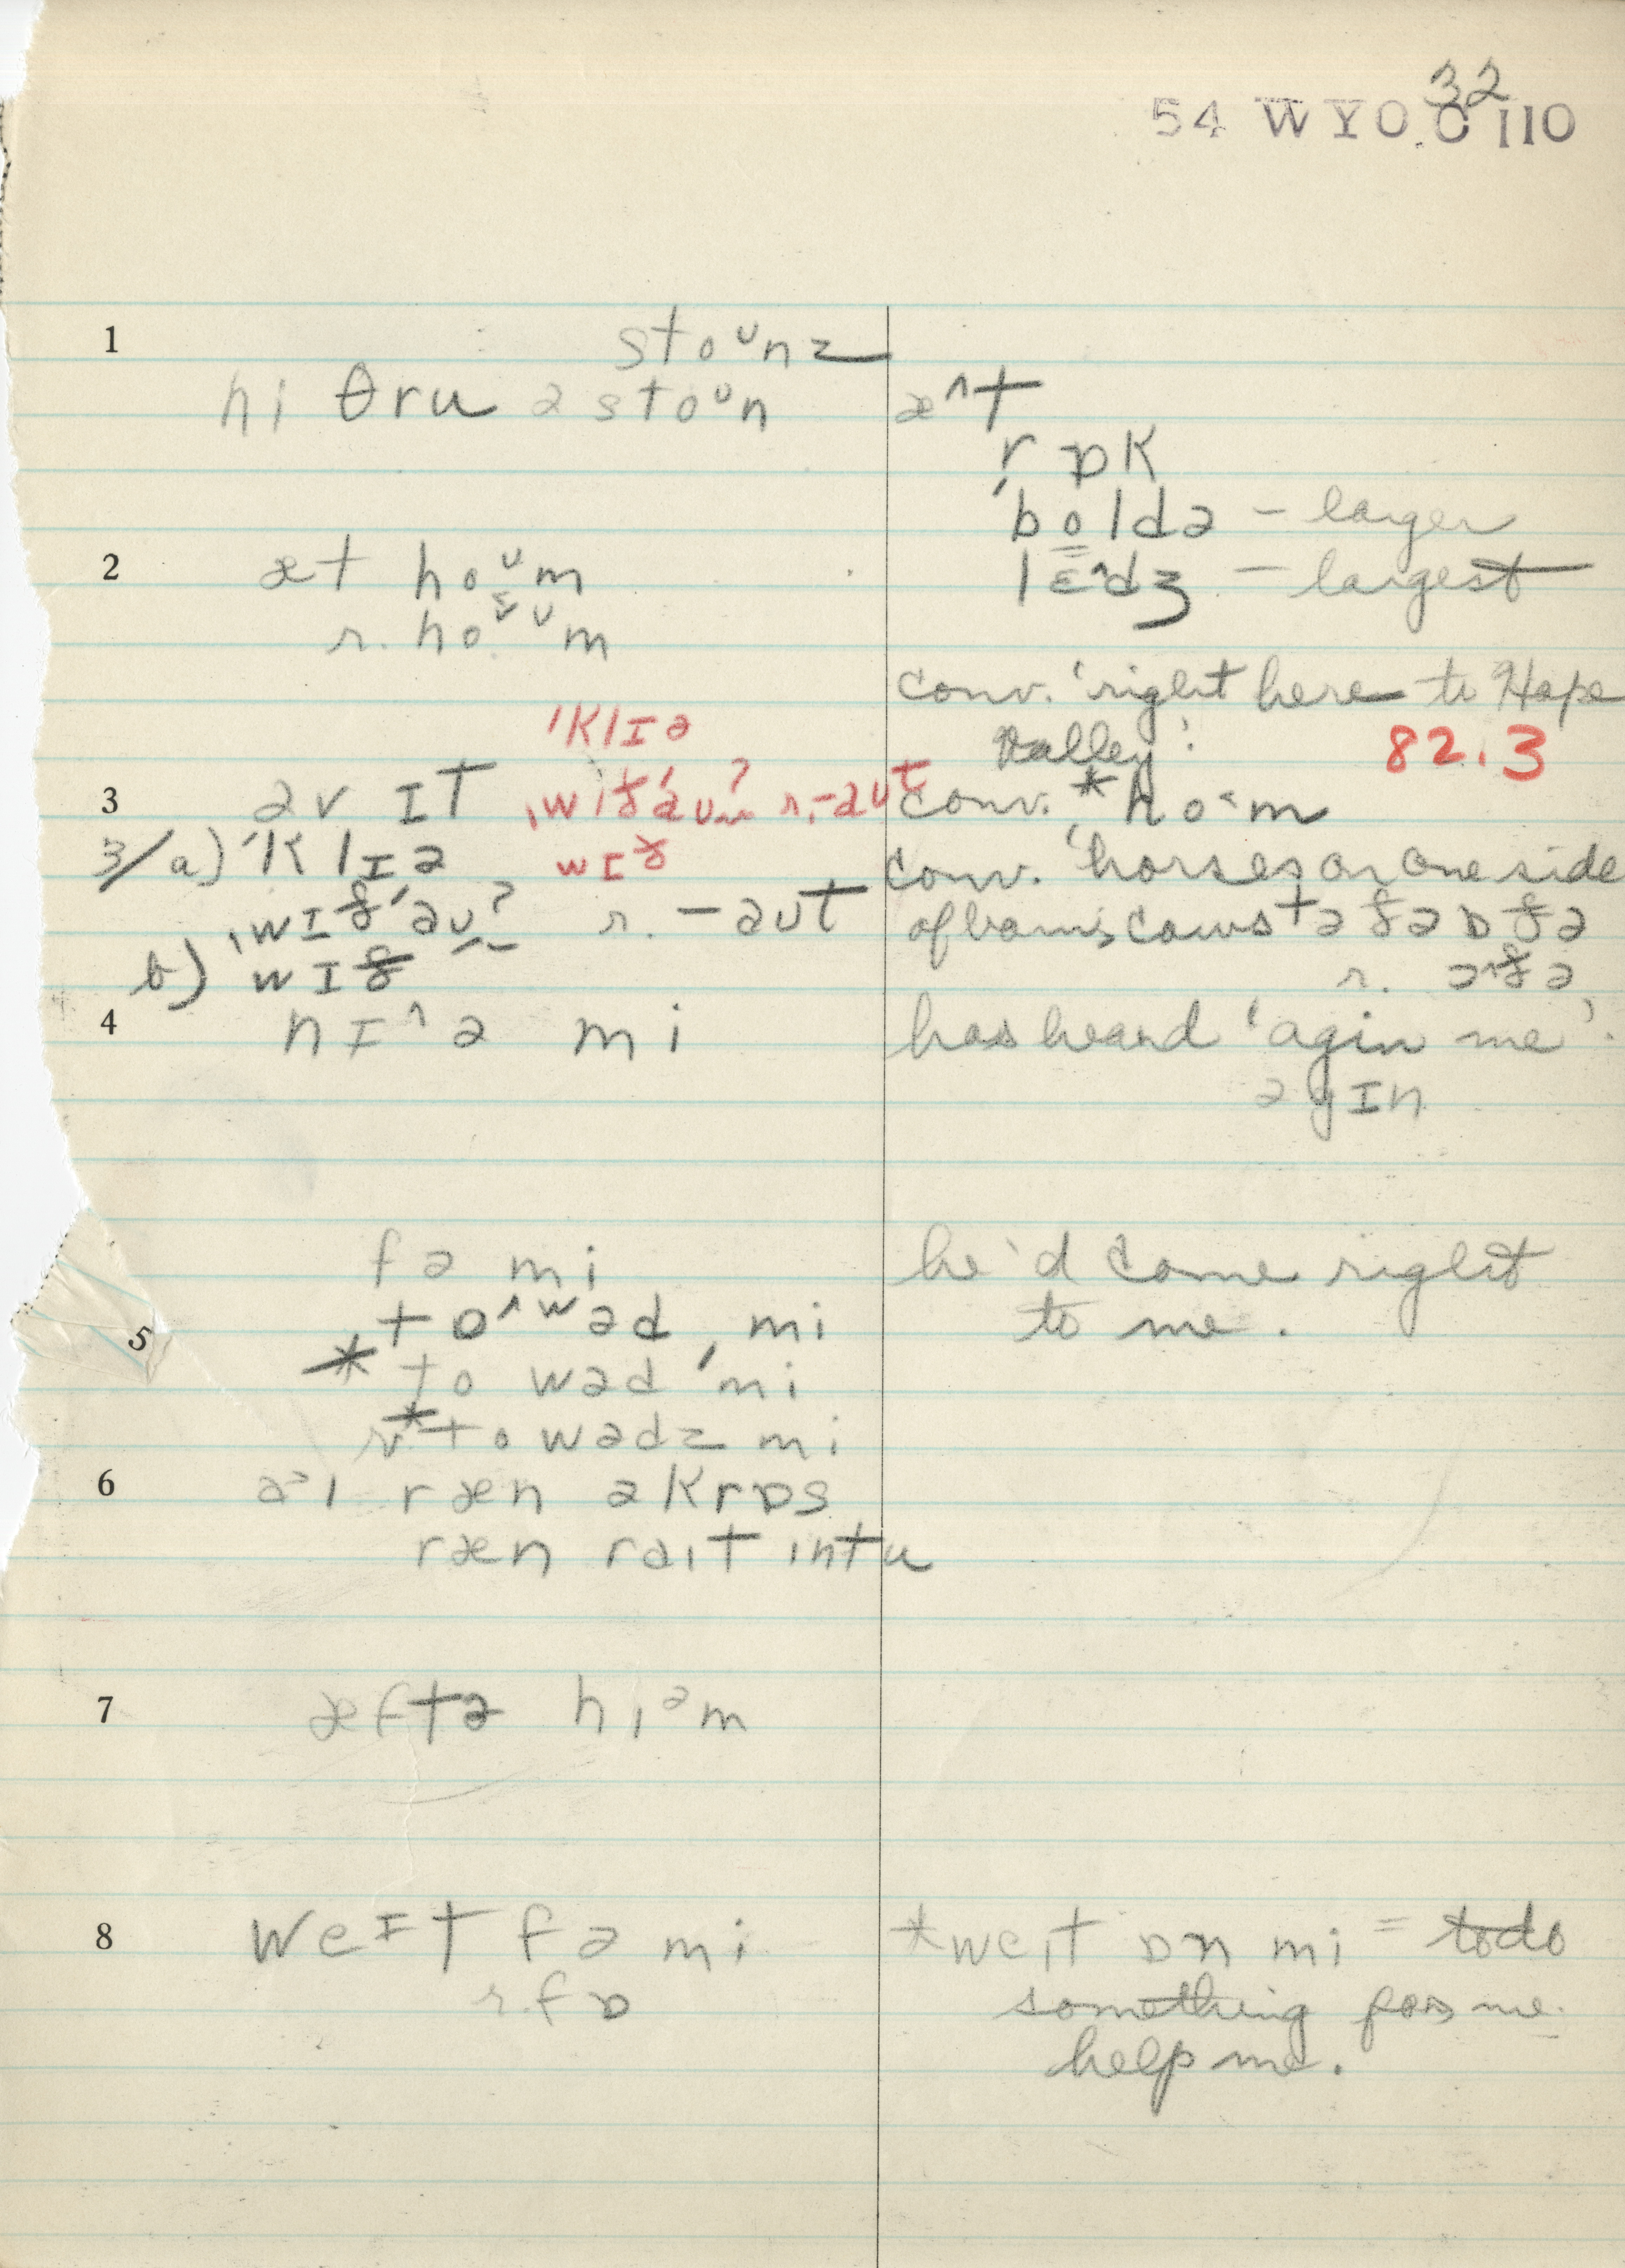 32
54 WYO. C 110
1
stoᴜnz
hi θru ə stoᴜn
æ^t
rɒk
ˈboldə – larger
2
æt hoᴜm
lɛ^dʒ – largest
r. hoᴜm
conv. 'right here to Hope
Valley'.
ˈklɪə
82.3
3
əv ɪt
ˌwɪðˈəᴜ? r. -aᴜt
conv. * ho^m
3/a) ˈklɪə
wɪð
conv. 'horses on one side
ˌwɪðˈəᴜ? r. – əᴜt
of barn; cows tə ðə ɒðə
b) wɪð
r. ə^ðə
4
nɪ^ə mi
has heard 'agin me'.
əgɪn
fə mi
he'd come right
5
tɒ^wəd ˌmi
to me.
* to wəd ˈmi
r* towədz mi
6
a>ɪ ræn əkrɒs
ræn raɪt ɪntu
7
æftə hɪəm
8
weɪt fə mi
*weɪt ɒn mi = to do
r. fɒ
something for me.
help me.